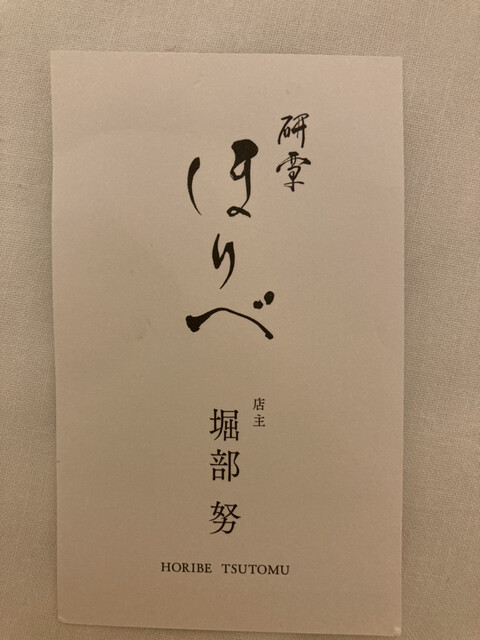 研覃
ほりべ
店主
堀部 努
HORIBE TSUTOMU